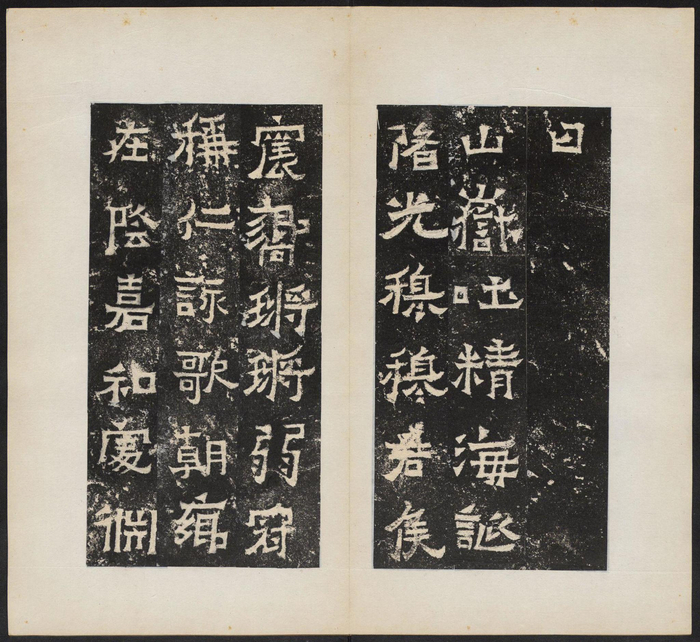 曰
山嶽吐精海誕
陼光穆穆君侯
震嚮鏘鏘弱冠
稱仁詠歌朝鄉
在陰嘉和處淵